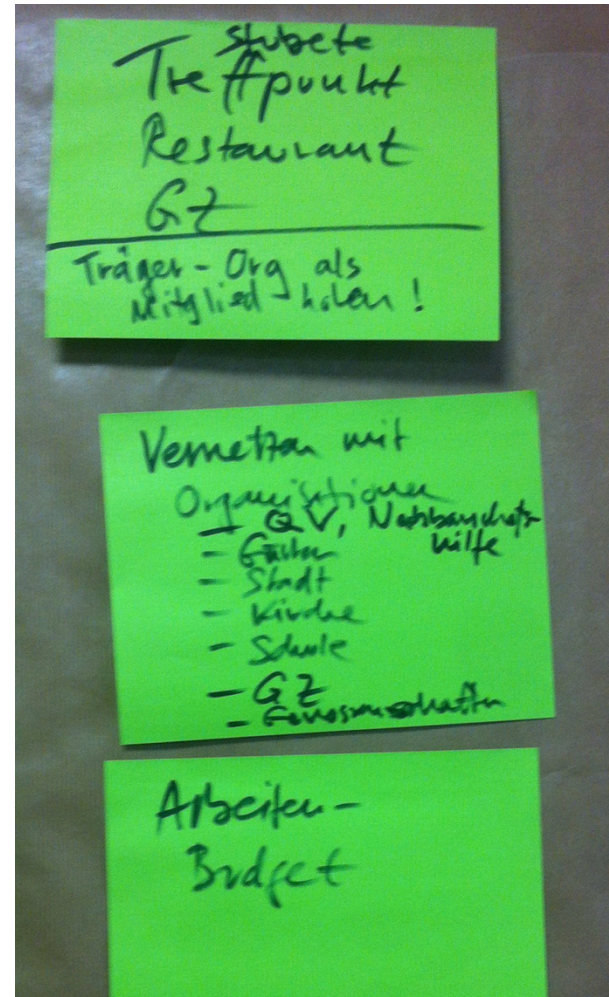 Stubete
Treffpunkt
Restaurant
GZ
Träger-Org als
Mitglied holen!
Vernetzen mit
Organisationen
- QV, Nachbarschafts
hilfe
- Gärten
- Stadt
- Kirche
- Schule
- GZ
- Genossenschaften
Arbeiten-
Budget